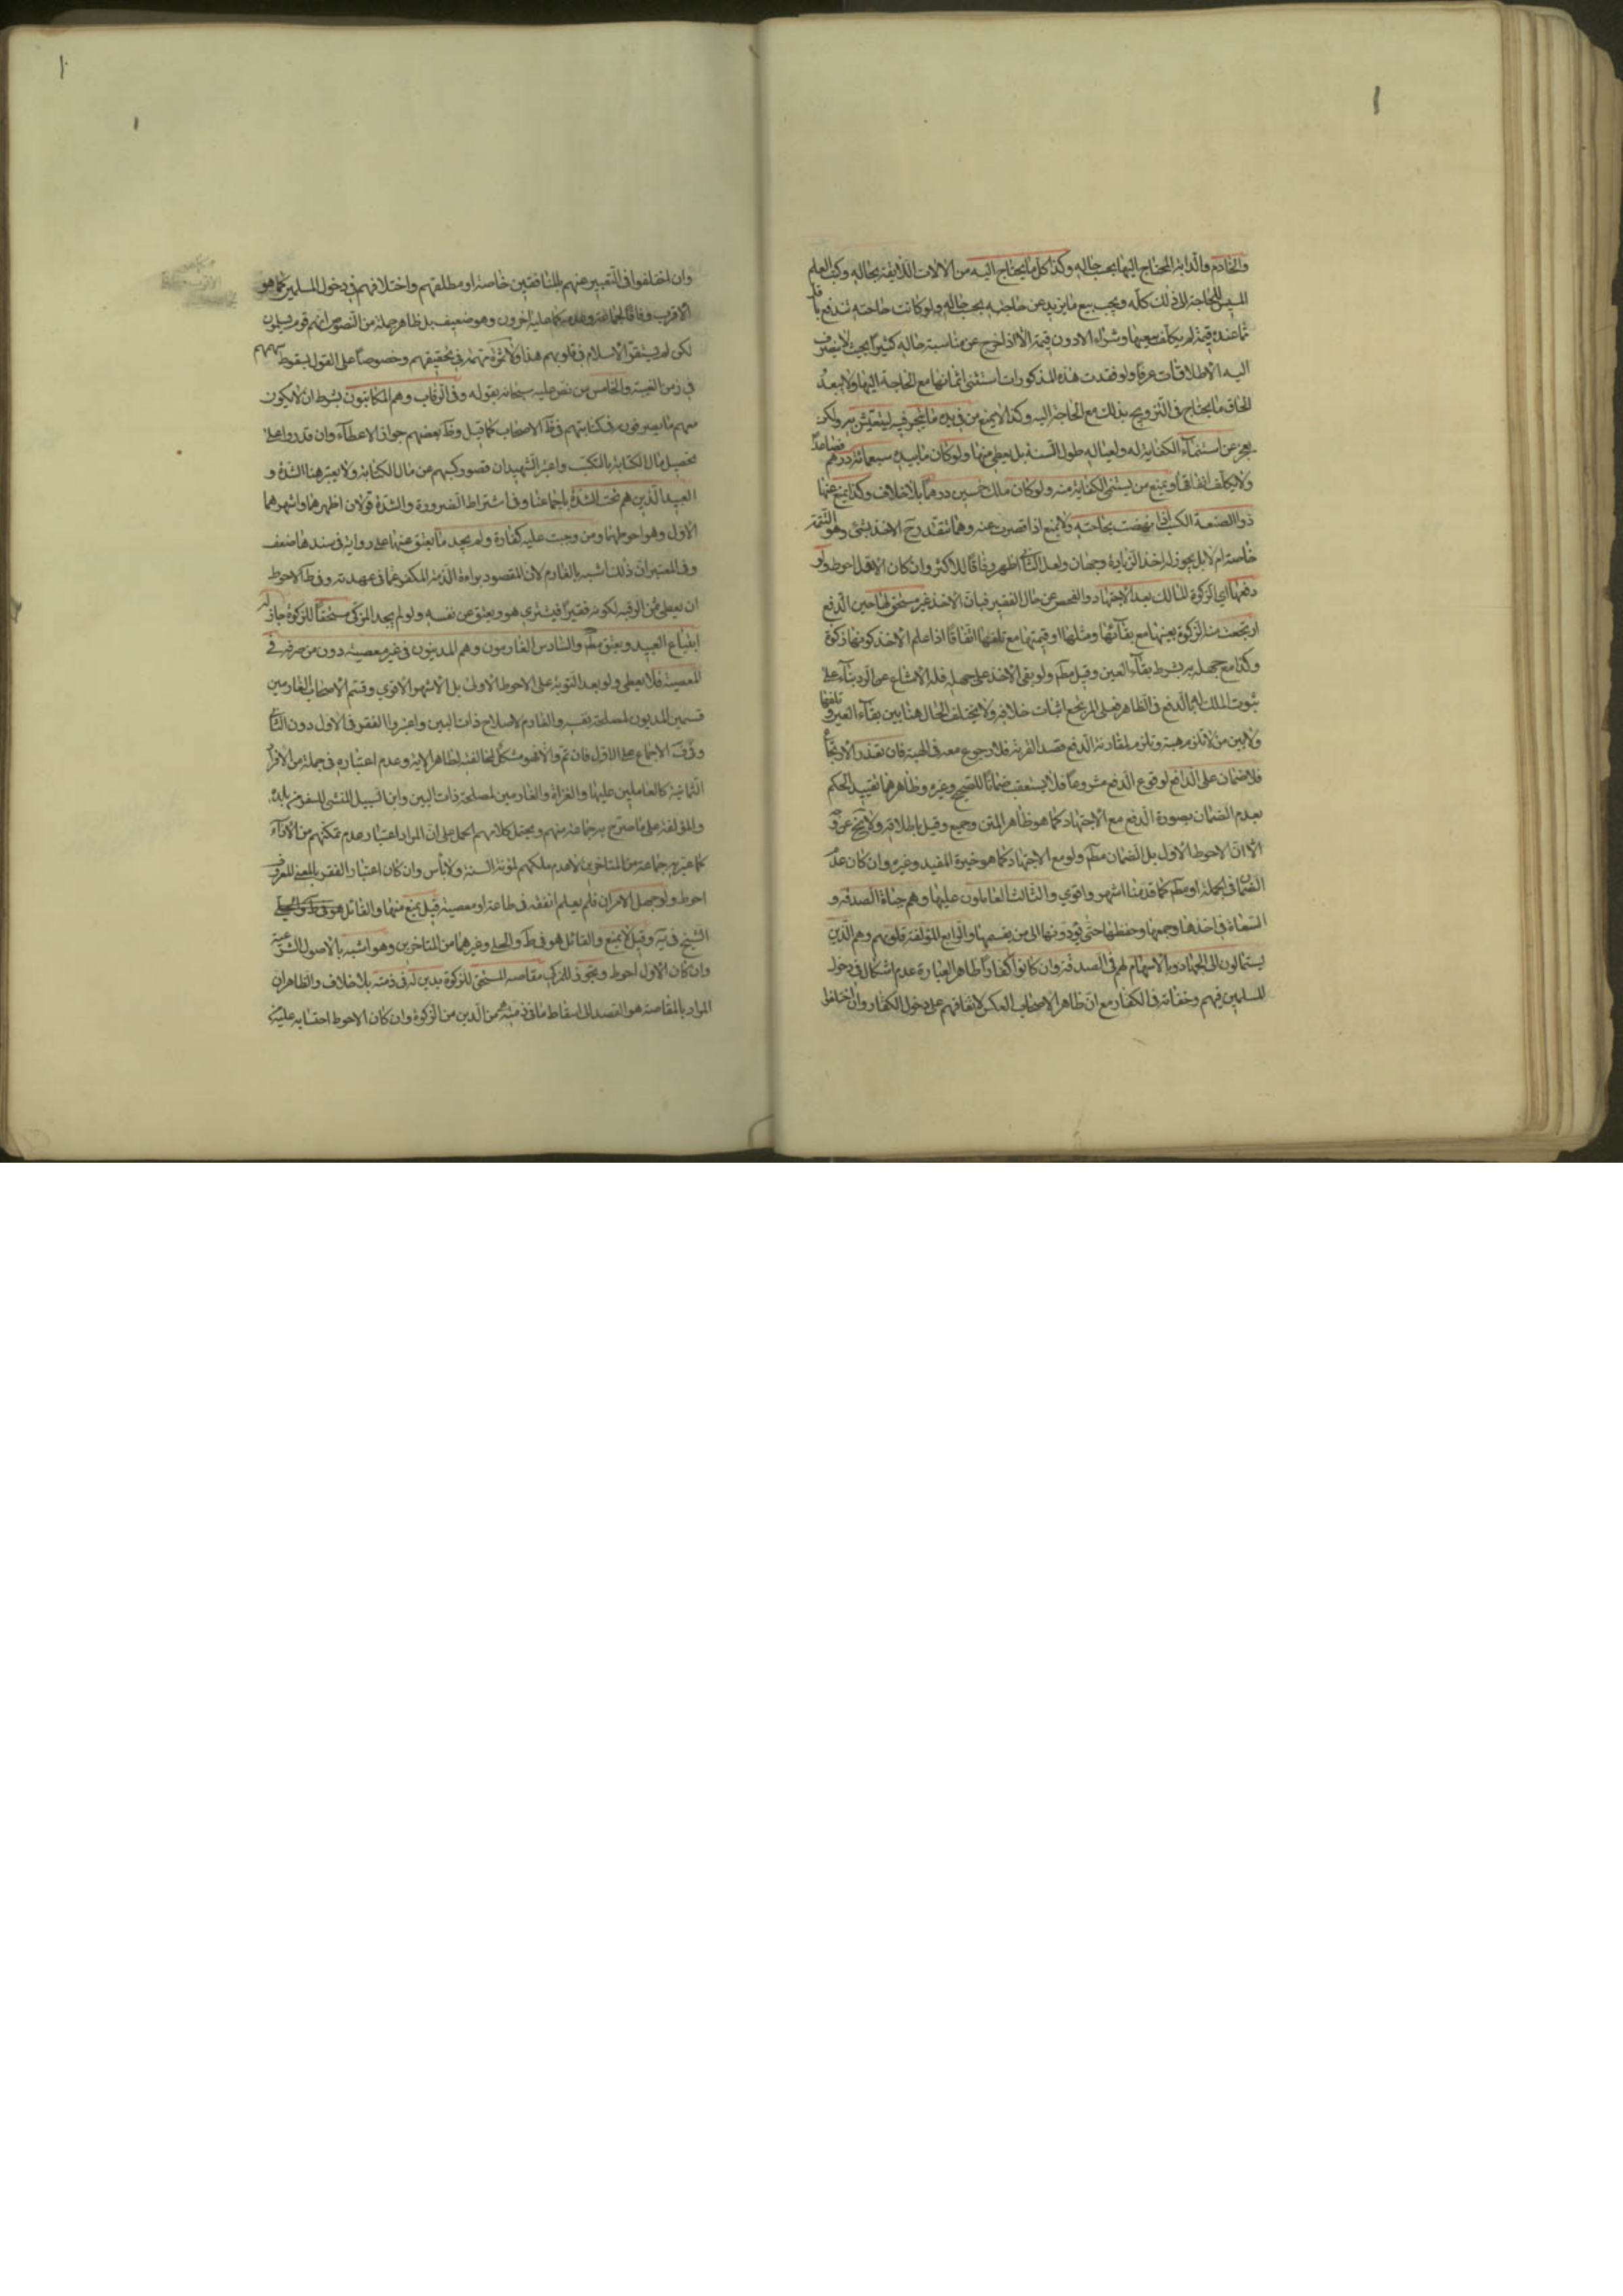 والخادم والدابة المحتاج اليها بحسب حاله وكذا كل ما يحتاج اليه من الالات اللايقة بحاله وكتب العلم
للحاجة الى ذلك كله ويجب بيع ما يزيد عن حاجته بحسب حاله ولو كانت حاجته تندفع باقل
مما عنده قيمة لم يكلف بيعها وشراء الادون قيمة الا اذا خرج عن مناسبة حاله كثيرا بحيث لا ينصرف
اليه الاطلاقات عرفا ولو فقدت هذه المذكورات استثنى اثمانها مع الحاجة اليها ولا يبعد
الحاق ما يحتاج في التزويج بذلك مع الحاجة اليه وكذا لا يمنع من في يده ما يتجر فيه ليتعيش به ولكن
يعجز عن استنماء الكفاية له ولعياله طول السنة بل يعطى منها ولو كان ما بيده سبعمائة درهم فصاعدا
ولا يكلف انفاقها ويمنع من يستنمي الكفاية منه ولو كان ملك خمسين درهما بلا خلاف وكذا يمنع عنها
ذو الصنعة الكسب اذا نهضت بحاجته ولا يمنع اذا قصرت عنه وهل يتقدر ح الاخذ بشئ وهو التتمة
خاصة ام لا بل يجوز له اخذ الزيادة وجهان ولعل الثاني اظهر وفاقا للاكثر وان كان الاول احوط ولو
دفعها اي الزكوة المالك بعد الاجتهاد والفحص عن حال الفقير فبان الاخذ غير مستحق لها حين الدفع
ارتجعت منه الزكوة بعينها مع بقائها ومثلها او قيمتها مع تلفها اتفاقا اذا علم الاخذ كونها زكوة
وكذا مع جهله به بشرط بقاء العين وقيل مطم ولو بقي الاخذ على جهله فله الامتناع عن الرد بناء على
ثبوت الملك له بالدفع في الظاهر فعلى المرتجع اثبات خلافه ولا يختلف الحال هنا بين بقاء العين وتلفها
ولا بين من لا تلزم هبته وتلزم لمقارنة الدفع قصد القربة فلا رجوع معه في الهبة فان تعذر الارتجاع
فلا ضمان على الدافع لوقوع الدفع مشروعا فلا يستعقب ضمانا للصحيح وغيره وظاهرهما تقييد الحكم
بعدم الضمان بصورة الدفع مع الاجتهاد كما هو ظاهر المتن وجمع وقيل باطلاقه ولا يخ عن وجه
الا ان الاحوط الاول بل الضمان مطم ولو مع الاجتهاد كما هو خيرة المفيد وغيره وان كان عدم
الضمان في الجملة او مطم كما قدمنا اشهر واقوى والثالث العاملون عليها وهم جباة الصدقة و
السعاة في اخذها وجمعها وحفظها حتى يؤدونها الى من يقسمها والرابع المؤلفة قلوبهم وهم الذين
يستمالون الى الجهاد بالاسهام لهم في الصدقة وان كانوا كفارا ظاهر العبارة عدم اشكال في دخول
المسلمين فيهم وخفائه في الكفار مع ان ظاهر الاصحاب العكس لاتفاقهم على دخول الكفار وان اختلفوا
وان اختلفوا في التعبير عنهم بالمنافقين خاصة او مطلقهم واختلافهم في دخول المسلمين كما هو
الاقرب وفاقا لجماعة وعدمه كما عليه اخرون وهو ضعيف بل ظاهر جملة من النصوص انهم قوم مسلمون
لكن لم يستقر الاسلام في قلوبهم هذا ولا ثمرة مهمة في تحقيقهم وخصوصا على القول بسقوط سهمهم
في زمن الغيبة والخامس من نص عليه سبحانه بقوله وفي الرقاب وهم المكاتبون بشرط ان لا يكون
معهم ما يصرفونه في كتابتهم في ظ الاصحاب كما قيل وظ بعضهم جواز الاعطاء وان قدروا على
تحصيل مال الكتابة بالتكسب واعتبر الشهيدان قصور كسبهم عن مال الكتابة ولا يعتبر هنا الشدة و
العبيد الذين هم تحت الشدة باجماعنا وفي اشتراط الضرورة والشدة قولان اظهرهما واشهرهما
الاول وهو احوطهما ومن وجبت عليه كفارة ولم يجد ما يعتق عنها على رواية في سندها ضعف
وفي المعتبر ان ذلك اشبه بالغارم لان المقصود براءة الذمة المكفر عما في عهدته وفي ط الاحوط
ان يعطى ثمن الرقبة لكونه فقيرا فيشتري هو ويعتق عن نفسه ولو لم يجد المزكي مستحقا للزكوة جاز له
ابتياع العبيد ويعتق مطم والسادس الغارمون وهم المدينون في غير معصية دون من صرفه في
المعصية فلا يعطى ولو بعد التوبة على الاحوط الاولى بل الاشهر الاقوى وقسم الاصحاب الغارمين
قسمين المديون لمصلحة نفسه والغارم لاصلاح ذات البين واعتبروا الفقر في الاول دون الثاني
الاجماع على الاول فان تم والا فهو مشكل لمخالفته لظاهر الاية وعدم اعتباره في جملة من الافراد
الثمانية كالعاملين عليها والغزاة والغارمين لمصلحة ذات البين وابن السبيل المنشئ للسفر من بلده
والمؤلفة على ما صرح به جماعة منهم ويحتمل كلامهم الحمل على ان المراد اعتبار عدم تمكنهم من الاداء
كما عبر به جماعة من المتاخرين لا عدم ملكهم لمؤنة السنة ولا باس وان كان اعتبار الفقر بالمعنى المعروف
احوط ولو جهل الامران فلم يعلم انفقه في طاعة او معصية قيل يمنع منها والقائل
الشيخ في ية وقيل لا يمنع والقائل هو في ط والحلي وغيرهما من المتاخرين وهو اشبه بالاصول الشرعية
وان كان الاول احوط ويجوز للمزكي مقاصة المستحق للزكوة بدين له في ذمته بلا خلاف والظاهر ان
المراد بالمقاصة هو القصد الى اسقاط ما في ذمته من الدين من الزكوة وان كان الاحوط احتسابه عليه